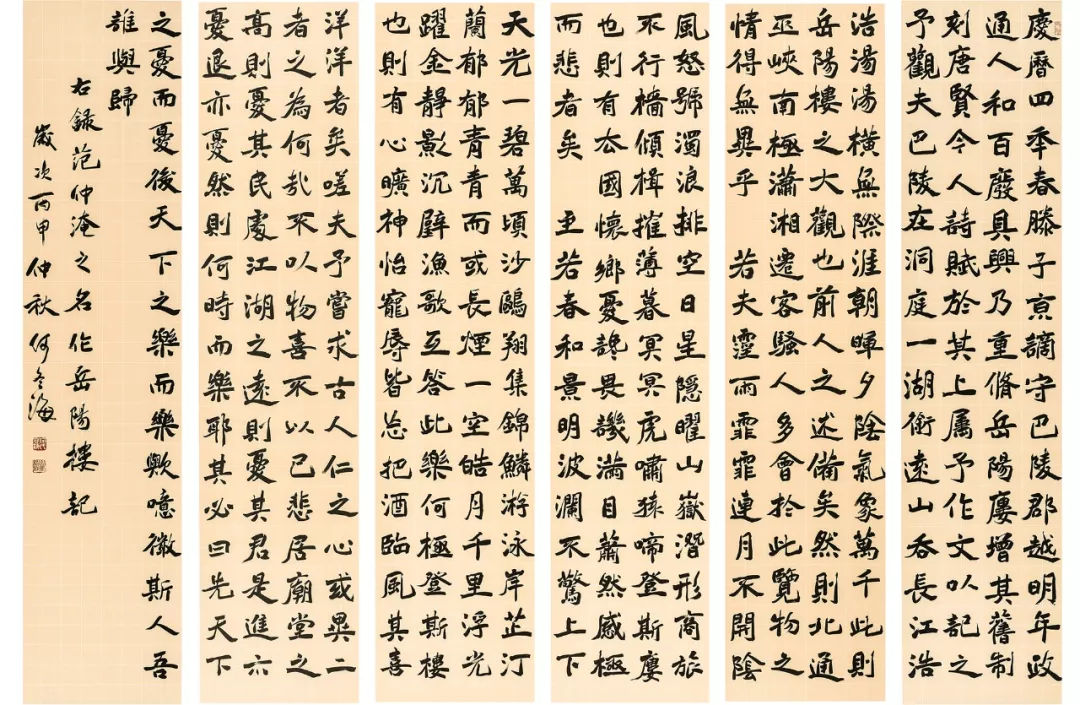 慶曆四年春滕子京謫守巴陵郡越明年政
通人和百廢具興乃重脩岳陽樓增其舊制
刻唐賢今人詩賦於其上屬予作文以記之
予觀夫巴陵在洞庭一湖銜遠山吞長江浩
浩湯湯橫無際涯朝暉夕陰氣象萬千此則
岳陽樓之大觀也前人之述備矣然則北通
巫峽南極瀟湘遷客騷人多會於此覽物之
情得無異乎 若夫霪雨霏霏連月不開陰
風怒號濁浪排空日星隱曜山嶽潛形商旅
不行檣傾楫摧薄暮冥冥虎嘯猿啼登斯樓
也則有去國懷鄉憂讒畏譏滿目蕭然感極
而悲者矣 至若春和景明波瀾不驚上下
天光一碧萬頃沙鷗翔集錦鱗游泳岸芷汀
蘭郁郁青青而或長煙一空皓月千里浮光
躍金靜影沉璧漁歌互答此樂何極登斯樓
也則有心曠神怡寵辱皆忘把酒臨風其喜
洋洋者矣嗟夫予嘗求古人仁之心或異二
者之為何哉不以物喜不以己悲居廟堂之
高則憂其民處江湖之遠則憂其君是進亦
憂退亦憂然則何時而樂耶其必曰先天下
之憂而憂後天下之樂而樂歟噫微斯人吾
誰與歸
右錄范仲淹之名作岳陽樓記
歲次丙申仲秋何冬海